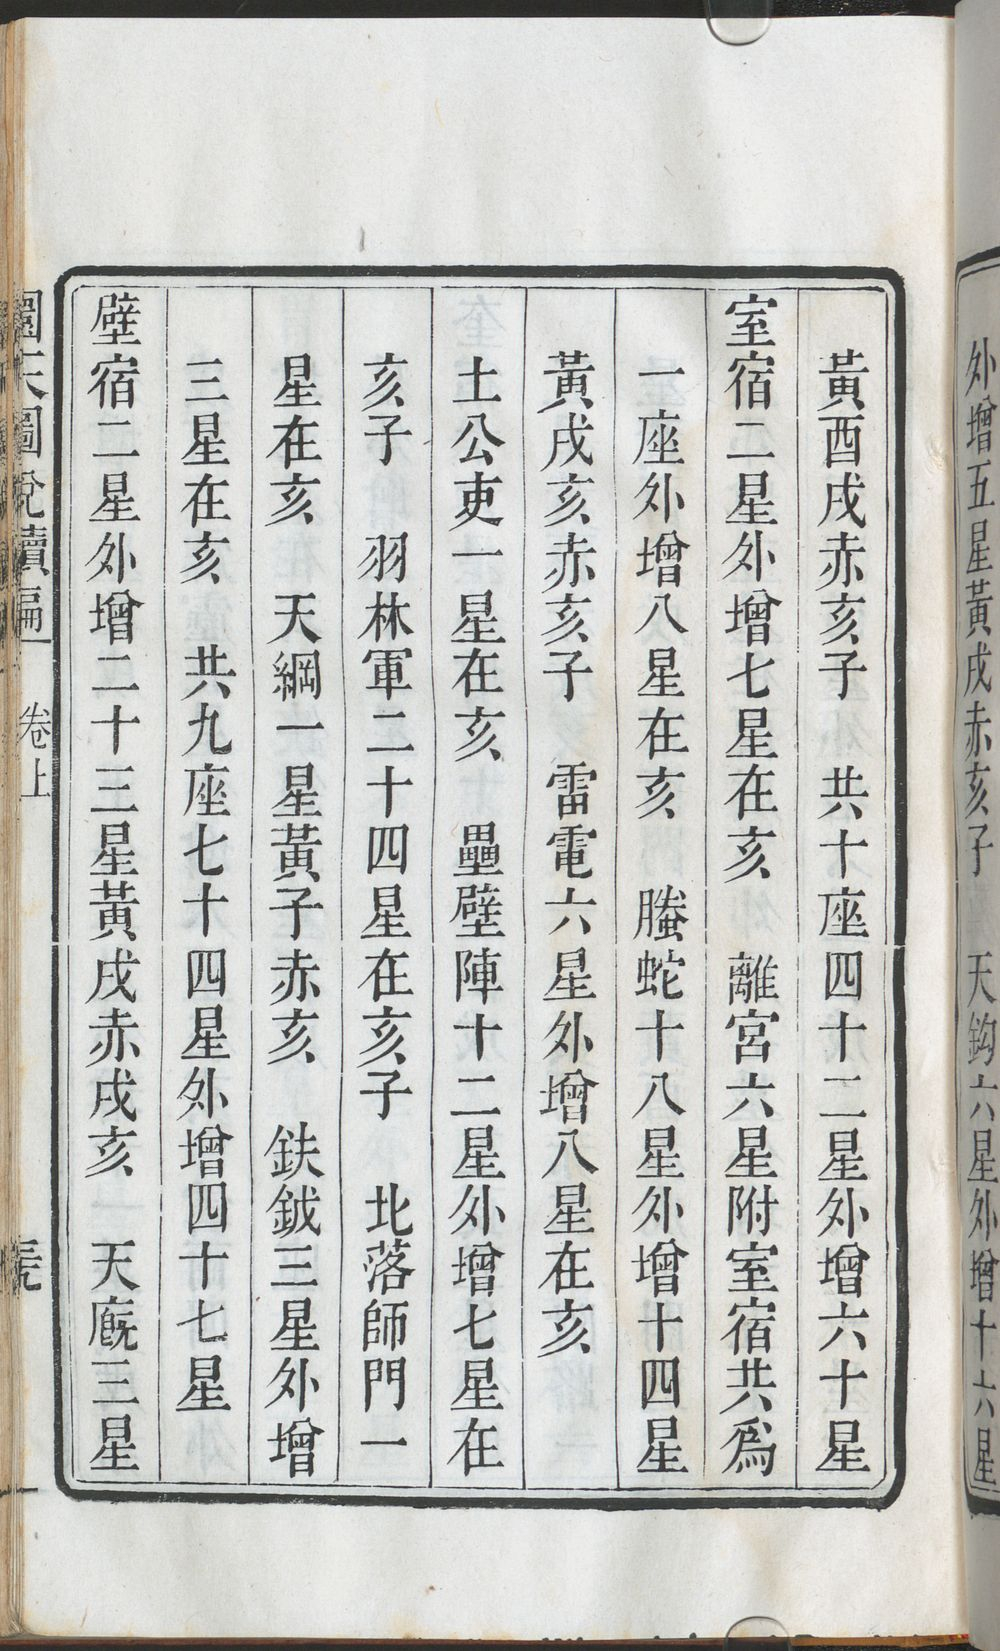 外增五星黃戌赤亥子　天鈎六星外增十六星
黃酉戌赤亥子　共十座四十二星外增六十星
室宿二星外增七星在亥　離宮六星附室宿共爲
一座外增八星在亥　螣蛇十八星外增十四星
黃戌亥赤亥子　雷電六星外增八星在亥
土公吏一星在亥　壘壁陣十二星外增七星在
亥子　羽林軍二十四星在亥子　北落師門一
星在亥　天綱一星黃子赤亥　鈇鉞三星外增
三星在亥　共九座七十四星外增四十七星
壁宿二星外增二十三星黃戌赤戌亥　天廐三星
圜天圖說續編　卷上